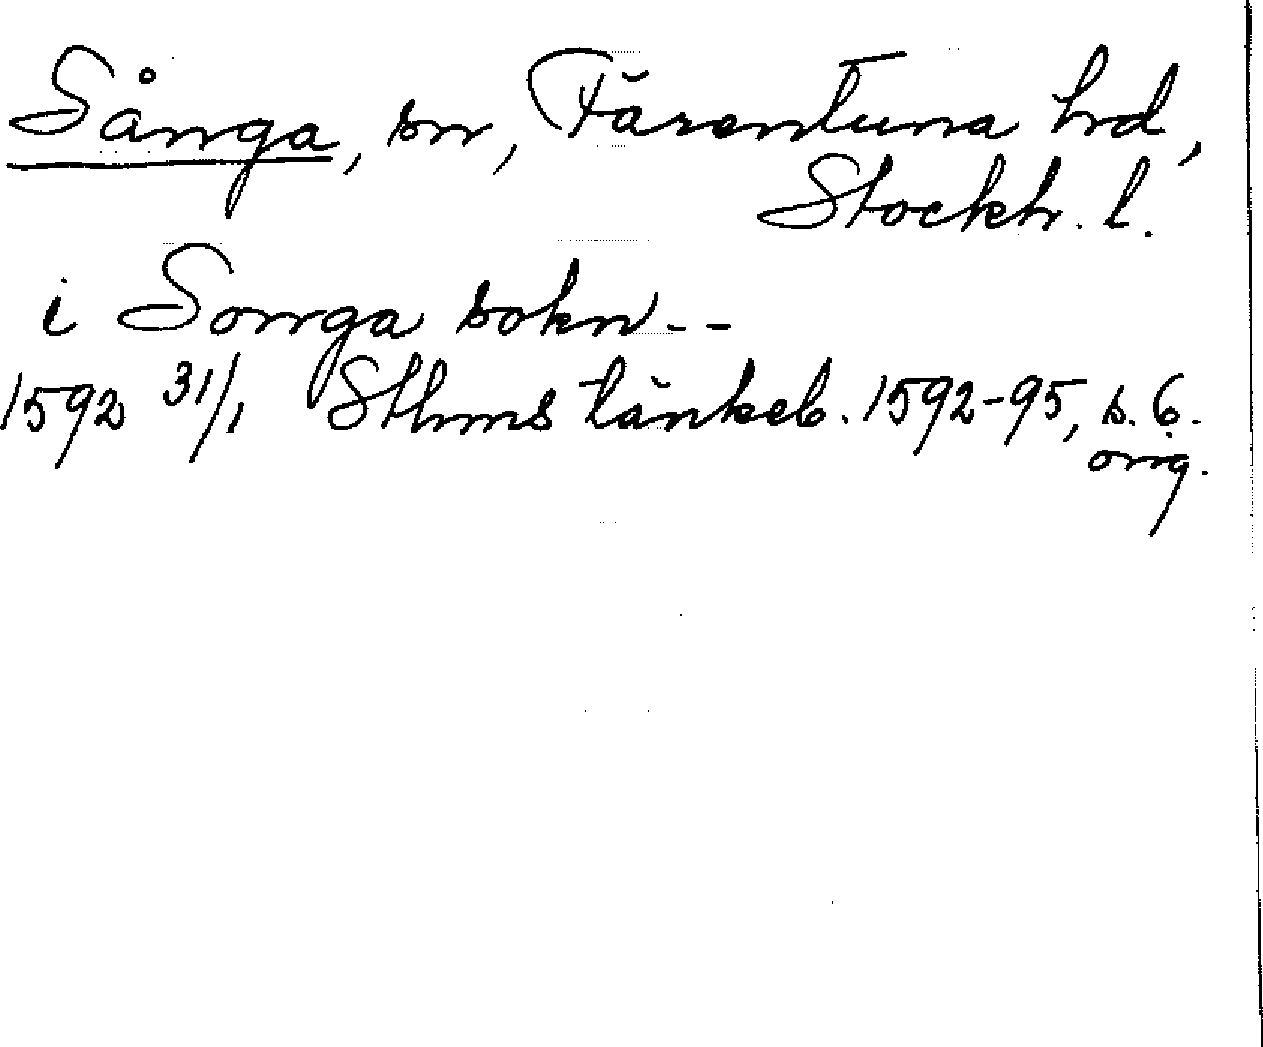 Sånga, sn, Färentuna hrd,
Stockh. l.
i Songa sokn--
1592 31/1 Sthms tänkeb. 1592-95, s. 6.
orig.